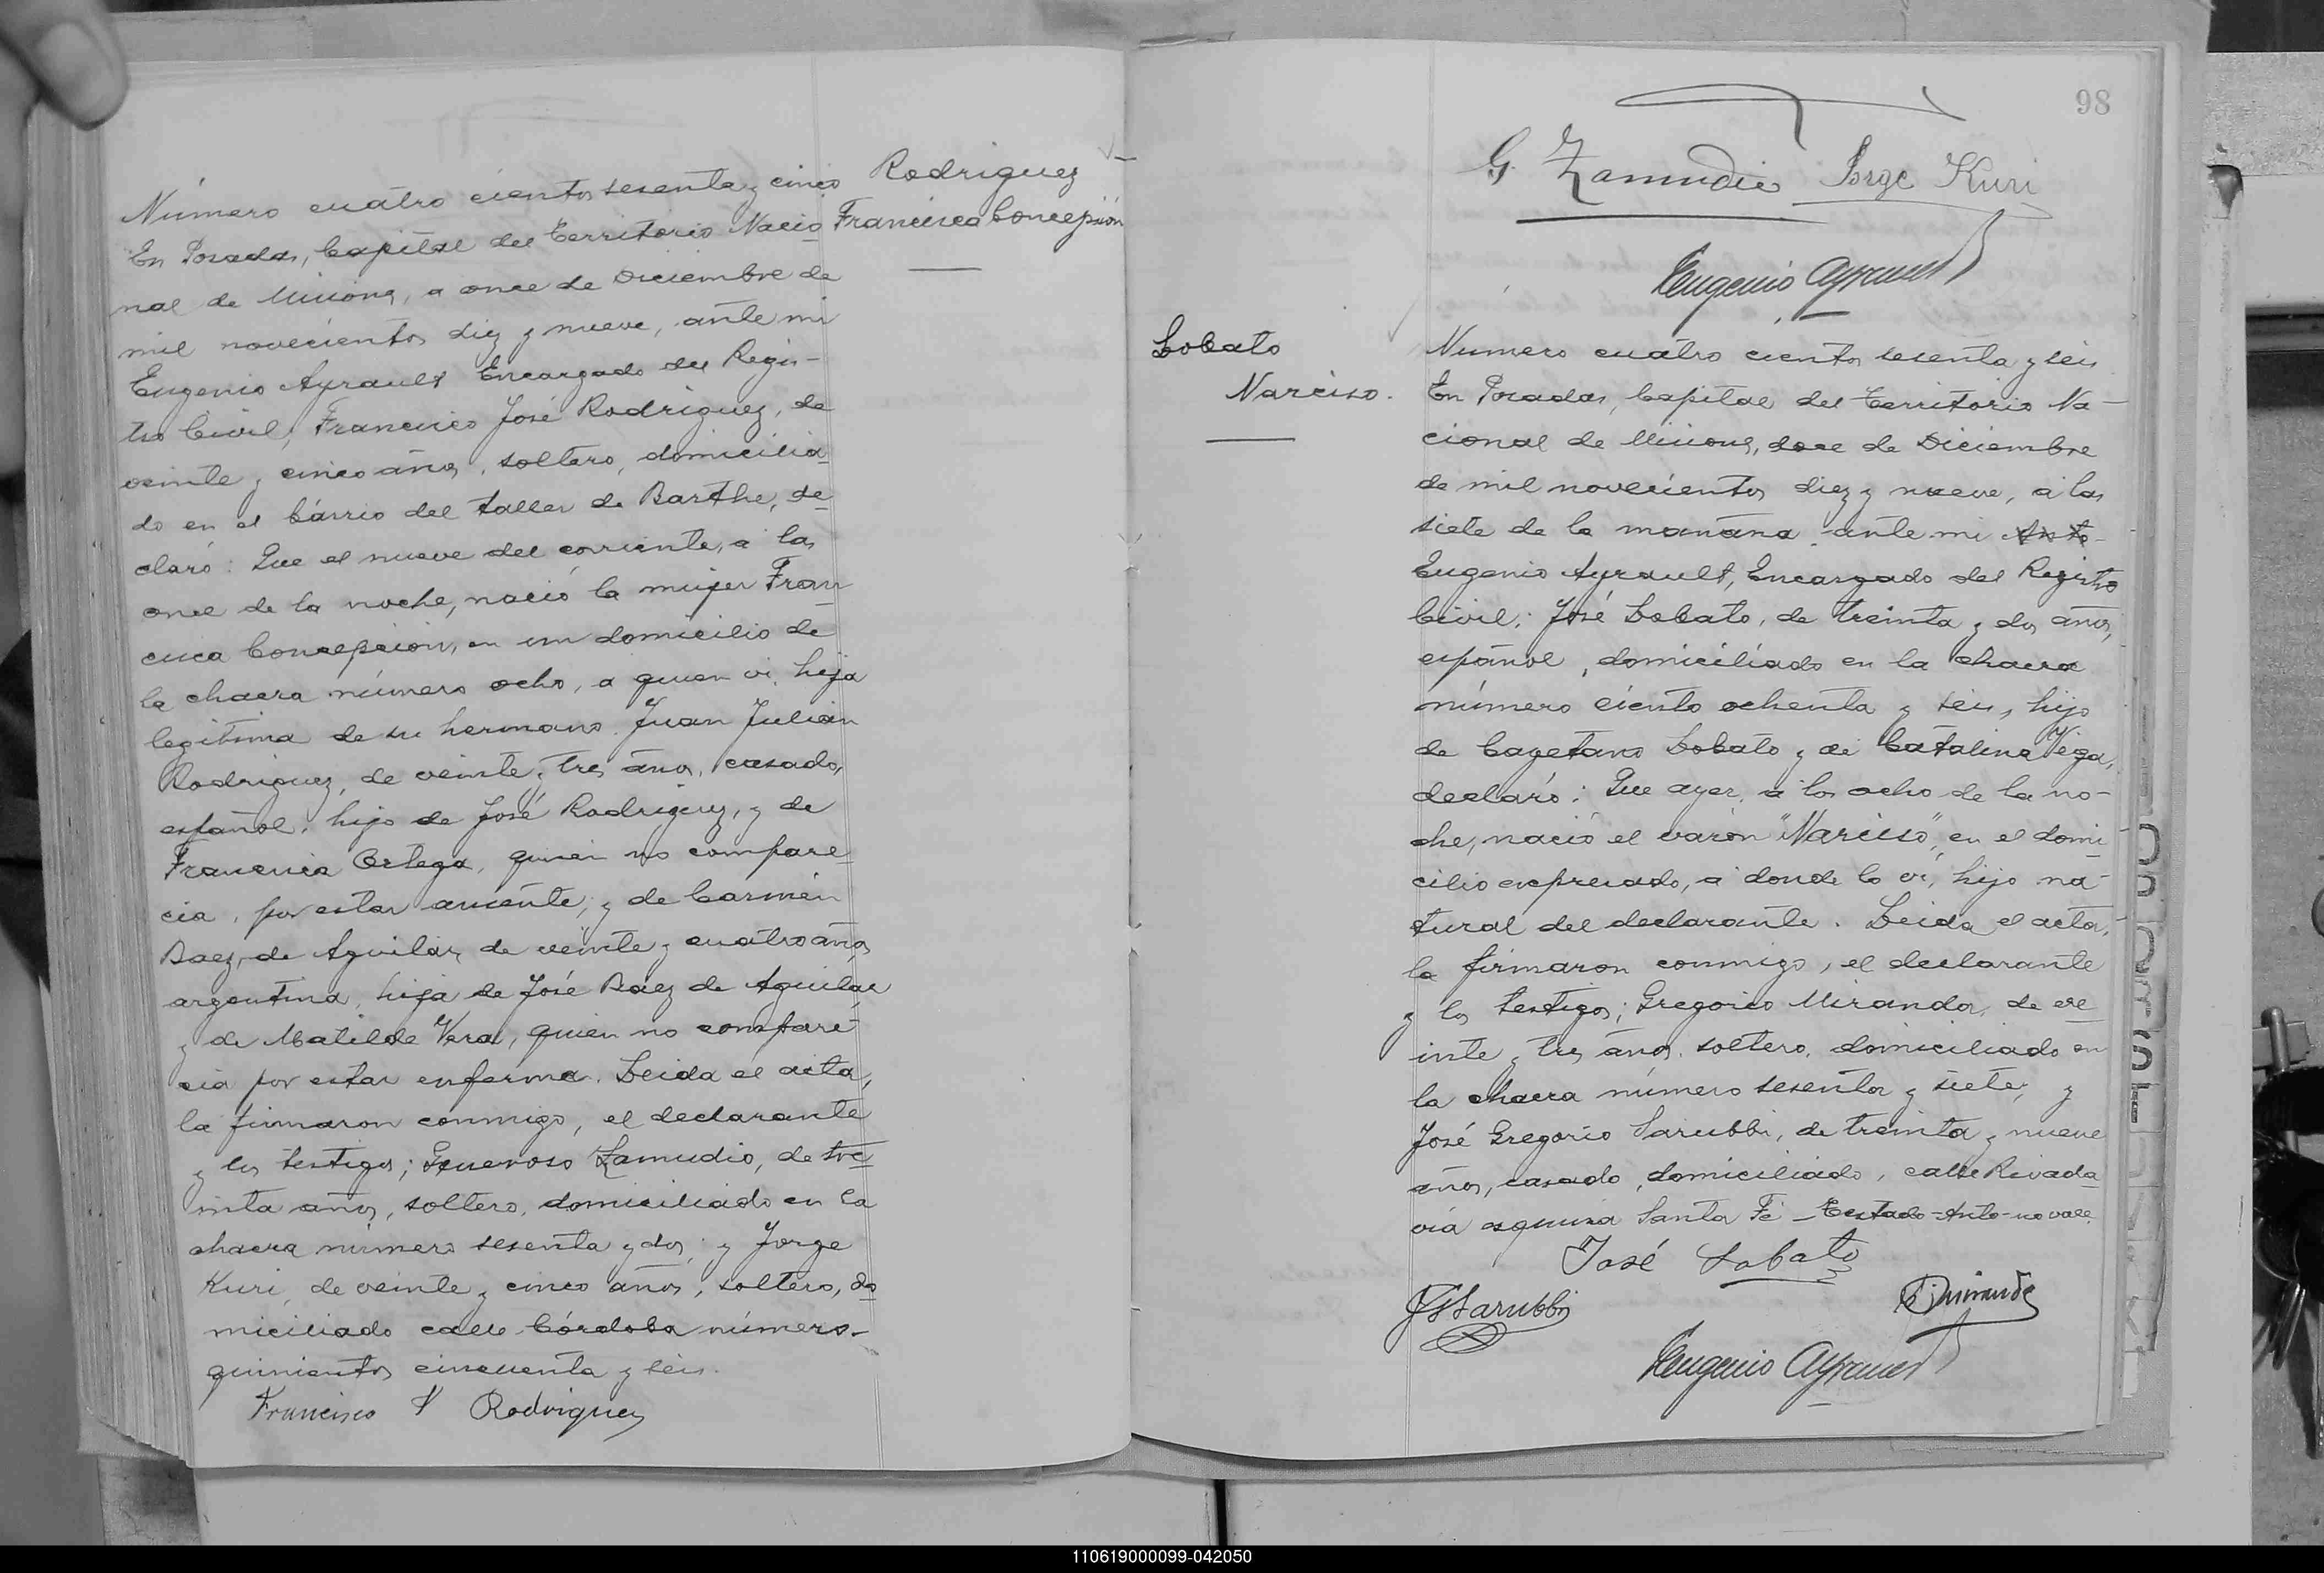 Rodriguez
Francisca Concepción
Número cuatro cientos sesenta y cinco
En Posadas, Capital del Territorio Nacio
nal de Misiones, a once de Diciembre de
mil novecientos diez y nueve, ante mi
Eugenio Ayrault Encargado del Regis-
tro Civil, Francisco José Rodriguez, de
veinte y cinco años, soltero, domicilia
do en el bárrio del taller de Barthe, de
claró: Que el nueve del corriente, a las
once de la noche, nació la mujer Fran
cisca Concepción, en un domicilio de
la chacra número ocho, a quien vi, hija
legitima de su hermano Juan Julián
Rodriguez, de veinte y tres años, casado,
español, hijo de José Rodriguez, y de
Francisca Ortega, quien no compare
cia, por estar ausente; y de Carmen
Baez, de Aguilar, de veinte y cuatro años
argentina, hija de José Baez de Aguilar
y de Matilde Vera, quien no compare
cia por estar enferma. Leida el acta,
la firmaron conmigo, el declarante
y los testigos; Generoso Zamudio, de tre
inta años, soltero, domiciliado en la
chacra numero sesenta y dos; y Jorge
Kuri, de veinte y cinco años, soltero, do
miciliado calle Córdoba número-
quinientos cincuenta y seis.
Francisco J Rodriguez
98
G. Zamudio Jorge Kuri
Eugenio Ayrault
Lobato
Narciso.
Numero cuatro cientos sesenta y seis
En Posadas, Capital del Territorio Na-
cional de Misiones, doce de Diciembre
de mil novecientos diez y nueve, a las
siete de la mañana ante mi Anto-
Eugenio Ayrault, Encargado del Registro
Civil; José Lobato, de treinta y dos años,
español, domiciliado en la chacra
número ciento ochenta y seis, hijo
de Cayetano Lobato y de Catalina Vega,
declaró: Que ayer, a las ocho de la no-
che, nació el varón "Narciso", en el domi
cilio expresado, a donde lo vi, hijo na-
tural del declarante. Leida el acta,
la firmaron conmigo, el declarante
y los testigos; Gregorio Miranda, de ve
inte y tres años, soltero, domiciliado en
la chacra número sesenta y siete; y
José Gregorio Sarubbi, de treinta y nueve
años, casado, domiciliado, calle Rivada
via esquina Santa Fé - Testado-Anto-no vale.
José Lobato
JGSarubbi
G Miranda
Eugenio Ayrault
110619000099-042050